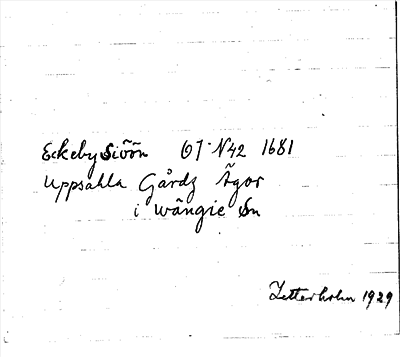 Eckeby Siöön OJ N42 1681
Uppsahla Gårdz Ägor
i Wängie Sn
Zetterholm 1929